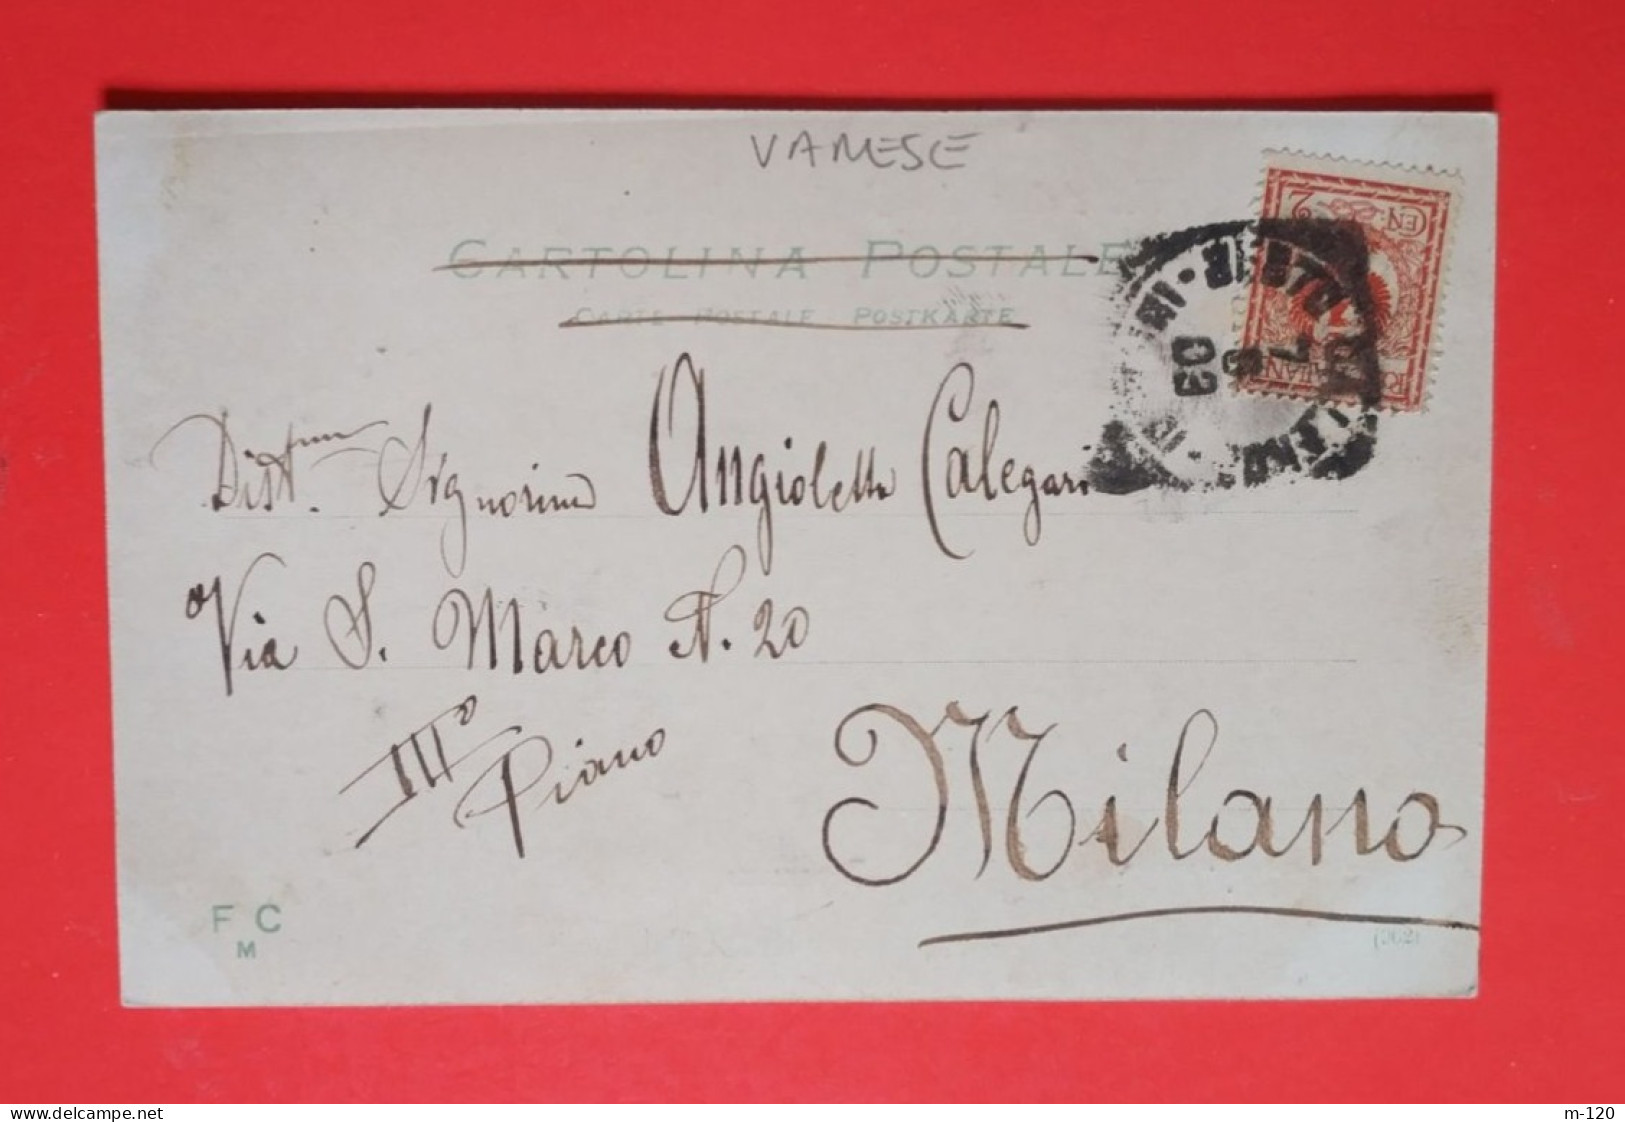 VARESE
CARTOLINA POSTALE
CARTE POSTALE POSTKARTE
CEN. 2
03
Distma. Signorina Angioletta Calegari
Via S. Marco N. 20
IIIº Piano
Milano
F C
M
(362)
delcampe.net
m-120